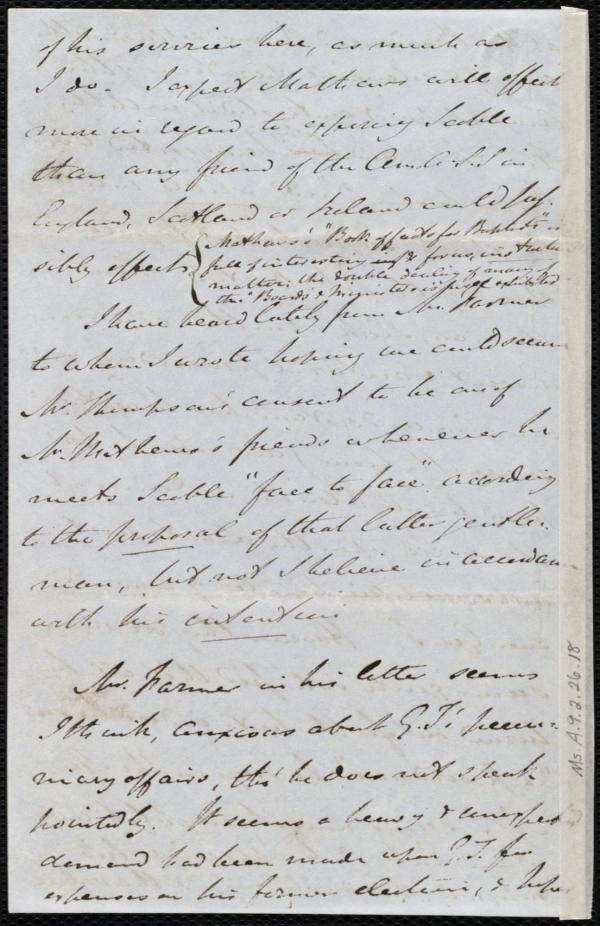 of his services here, as much as
I do - I expect Mathews will effect
more in regard to exposing Scoble
than any friend of the Am. A. S. S. in
England, Scotland or Ireland could pos-
sibly effect.
{Mathews's "Book of facts for Baptists" is
full of interesting & curious & other
matter; the double dealing of many of
the "Boards" & Ministers is exhibited.
I have heard lately from Mr. Farmer
to whom I wrote hoping we could secure
Mr. Thompson's consent to be one of
Mr. Mathews's friends whenever he
meets Scoble "face to face" according
to the proposal of that latter gentle-
man, but not I believe in accordance
with his intention
Mr. Farmer in his letter seems
I think, anxious about G. T.'s pecu-
niary affairs, tho' he does not speak
pointedly. It seems a heavy & unexpect
demand had been made upon G. T. for
expenses on his former election, & hope
Ms. A. 9. 2. 26. 18